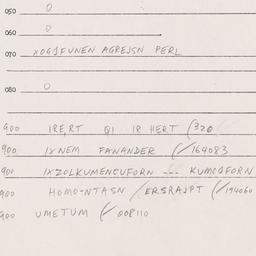 050 0
060 0
070 XOGIFUNEN AGREJSN PERL
080 0
900 IRE,RT QI IR HERT (320
900 IXNEM FAWANDER (/164083
900 IXZOLKUMENCUFORN --- KUMOSFORN
900 HOMO-NTASN /ERSRAJPT (/194060
900 UMETUM (/008110